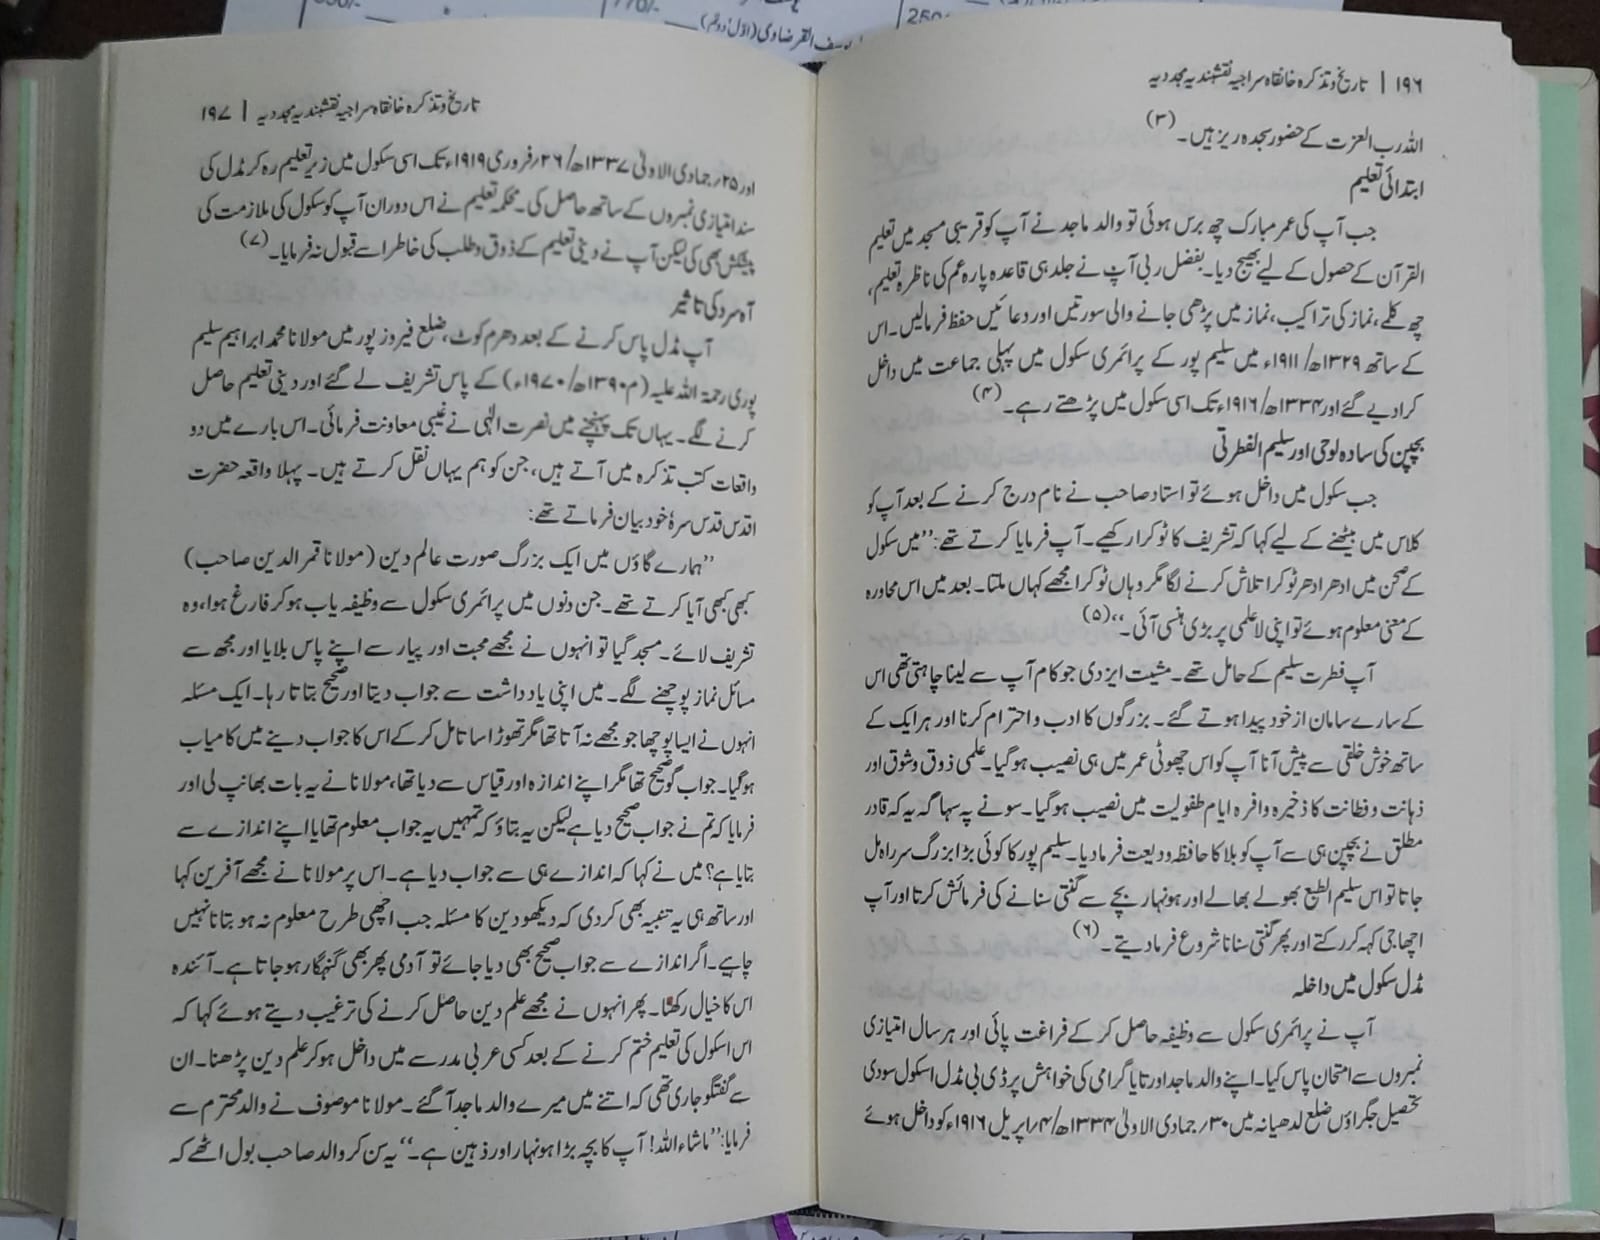 ۱۹۶ | تاریخ و تذکرہ خانقاہ سراجیہ نقشبندیہ مجددیہ
اللہ رب العزت کے حضور سجدہ ریز ہیں۔ (۳)
ابتدائی تعلیم
جب آپ کی عمر مبارک چھ برس ہوئی تو والد ماجد نے آپ کو قریبی مسجد میں تعلیم
القرآن کے حصول کے لیے بھیج دیا۔ بفضل ربی آپ نے جلد ہی قاعدہ پارہ عم کی ناظرہ تعلیم،
چھ کلمے، نماز کی تراکیب، نماز میں پڑھی جانے والی سورتیں اور دعائیں حفظ فرمالیں۔ اس
کے ساتھ ۱۳۲۹ھ/۱۹۱۱ء میں سلیم پور کے پرائمری سکول میں پہلی جماعت میں داخل
کرا دیے گئے اور ۱۳۳۴ھ/۱۹۱۶ء تک اسی سکول میں پڑھتے رہے۔ (۴)
بچپن کی سادہ لوحی اور سلیم الفطرتی
جب سکول میں داخل ہوئے تو استاد صاحب نے نام درج کرنے کے بعد آپ کو
کلاس میں بیٹھنے کے لیے کہا کہ تشریف کا ٹوکرا رکھیے۔ آپ فرمایا کرتے تھے: ”میں سکول
کے صحن میں ادھر ادھر ٹوکرا تلاش کرنے لگا مگر وہاں ٹوکرا مجھے کہاں ملتا۔ بعد میں اس محاورہ
کے معنی معلوم ہوئے تو اپنی لاعلمی پر بڑی ہنسی آئی۔“ (۵)
آپ فطرت سلیم کے حامل تھے۔ مشیت ایزدی جو کام آپ سے لینا چاہتی تھی اس
کے سارے سامان از خود پیدا ہوتے گئے۔ بزرگوں کا ادب و احترام کرنا اور ہر ایک کے
ساتھ خوش خلقی سے پیش آنا آپ کو اس چھوٹی عمر میں ہی نصیب ہوگیا۔ علمی ذوق و شوق اور
ذہانت و فطانت کا ذخیرہ وافرہ ایام طفولیت میں نصیب ہوگیا۔ سونے پہ سہاگہ یہ کہ قادر
مطلق نے بچپن ہی سے آپ کو بلا کا حافظہ ودیعت فرما دیا۔ سلیم پور کا کوئی بڑا بزرگ سر راہ مل
جاتا تو اس سلیم الطبع بھولے بھالے اور ہونہار بچے سے گنتی سنانے کی فرمائش کرتا اور آپ
اچھا جی کہہ کر رکتے اور پھر گنتی سنانا شروع فرما دیتے۔ (۶)
مڈل سکول میں داخلہ
آپ نے پرائمری سکول سے وظیفہ حاصل کر کے فراغت پائی اور ہر سال امتیازی
نمبروں سے امتحان پاس کیا۔ اپنے والد ماجد اور تایا گرامی کی خواہش پر ڈی بی مڈل اسکول سودی
تحصیل جگراؤں ضلع لدھیانہ میں ۳۰؍ جمادی الاولیٰ ۱۳۳۴ھ/۴؍اپریل ۱۹۱۶ء کو داخل ہوئے
تاریخ و تذکرہ خانقاہ سراجیہ نقشبندیہ مجددیہ | ۱۹۷
اور ۲۵؍ جمادی الاولیٰ ۱۳۳۷ھ/ ۲۶؍ فروری ۱۹۱۹ء تک اسی سکول میں زیر تعلیم رہ کر مڈل کی
سند امتیازی نمبروں کے ساتھ حاصل کی۔ محکمہ تعلیم نے اس دوران آپ کو سکول کی ملازمت کی
پیشکش بھی کی لیکن آپ نے دینی تعلیم کے ذوق و طلب کی خاطر اسے قبول نہ فرمایا۔ (۷)
آہ سرد کی تاثیر
آپ مڈل پاس کرنے کے بعد دھرم کوٹ، ضلع فیروز پور میں مولانا محمد ابراہیم سلیم
پوری رحمۃ اللہ علیہ (م ۱۳۹۰ھ/۱۹۷۰ء) کے پاس تشریف لے گئے اور دینی تعلیم حاصل
کرنے لگے۔ یہاں تک پہنچنے میں نصرت الٰہی نے غیبی معاونت فرمائی۔ اس بارے میں دو
واقعات کتب تذکرہ میں آتے ہیں، جن کو ہم یہاں نقل کرتے ہیں۔ پہلا واقعہ حضرت
اقدس قدس سرہٗ خود بیان فرماتے تھے:
”ہمارے گاؤں میں ایک بزرگ صورت عالم دین (مولانا قمر الدین صاحب)
کبھی کبھی آیا کرتے تھے۔ جن دنوں میں پرائمری سکول سے وظیفہ یاب ہو کر فارغ ہوا، وہ
تشریف لائے۔ مسجد گیا تو انہوں نے مجھے محبت اور پیار سے اپنے پاس بلایا اور مجھ سے
مسائل نماز پوچھنے لگے۔ میں اپنی یادداشت سے جواب دیتا اور صحیح بتاتا رہا۔ ایک مسئلہ
انہوں نے ایسا پوچھا جو مجھے نہ آتا تھا مگر تھوڑا سا تامل کر کے اس کا جواب دینے میں کامیاب
ہوگیا۔ جواب گو صحیح تھا مگر اپنے اندازہ اور قیاس سے دیا تھا، مولانا نے یہ بات بھانپ لی اور
فرمایا کہ تم نے جواب صحیح دیا ہے لیکن یہ بتاؤ کہ تمہیں یہ جواب معلوم تھا یا اپنے اندازے سے
بتایا ہے؟ میں نے کہا کہ اندازے ہی سے جواب دیا ہے۔ اس پر مولانا نے مجھے آفرین کہا
اور ساتھ ہی یہ تنبیہ بھی کر دی کہ دیکھو دین کا مسئلہ جب اچھی طرح معلوم نہ ہو بتانا نہیں
چاہیے۔ اگر اندازے سے جواب صحیح بھی دیا جائے تو آدمی پھر بھی گنہگار ہو جاتا ہے۔ آئندہ
اس کا خیال رکھنا۔ پھر انہوں نے مجھے علم دین حاصل کرنے کی ترغیب دیتے ہوئے کہا کہ
اس اسکول کی تعلیم ختم کرنے کے بعد کسی عربی مدرسے میں داخل ہو کر علم دین پڑھنا۔ ان
سے گفتگو جاری تھی کہ اتنے میں میرے والد ماجد آگئے۔ مولانا موصوف نے والد محترم سے
فرمایا: ”ماشاء اللہ! آپ کا بچہ بڑا ہونہار اور ذہین ہے۔“ یہ سن کر والد صاحب بول اٹھے کہ